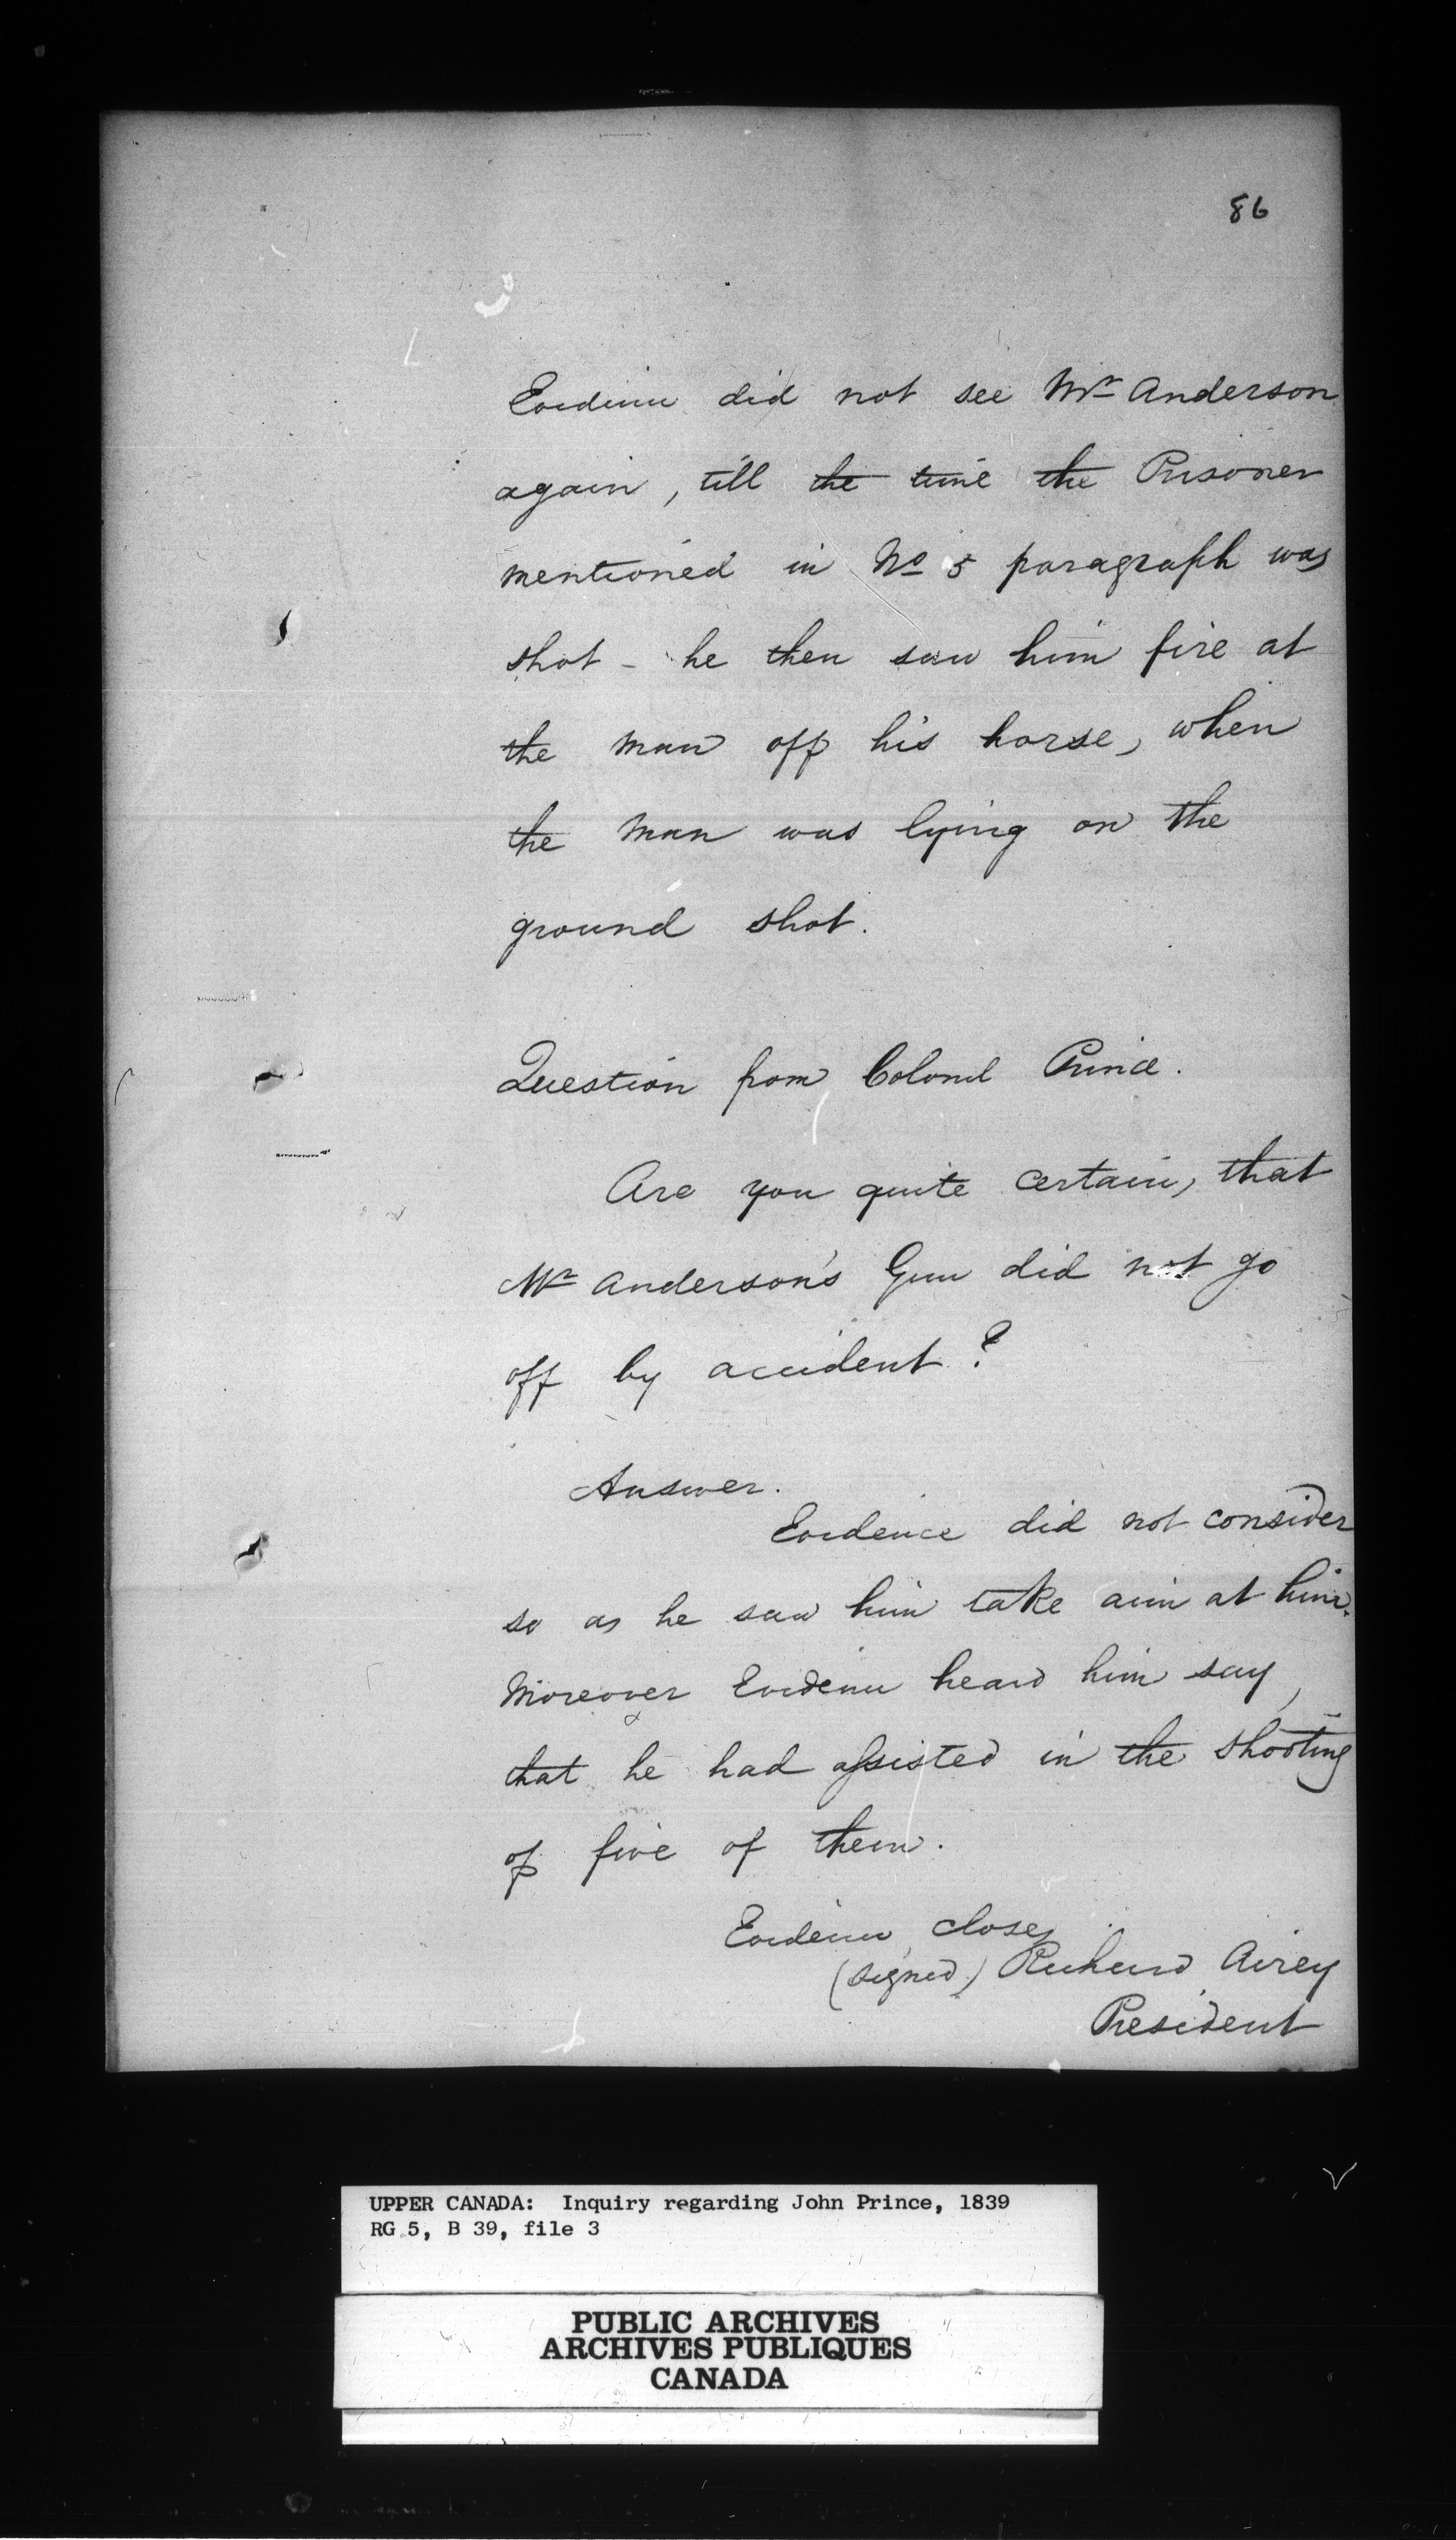 86
Evidence did not see Mr Anderson
again, till the time the Prisoner
mentioned in No 5 paragraph was
shot - he then saw him fire at
the man off his horse, when
the man was lying on the
ground shot.
Question from Colonel Prince.
Are you quite certain, that
Mr Anderson's Gun did not go
off by accident?
Answer.
Evidence did not consider
so as he saw him take aim at him.
Moreover Evidence heard him say,
that he had assisted in the shooting
of five of them.
Evidence closes.
(signed) Richard Airey
President
UPPER CANADA: Inquiry regarding John Prince, 1839
RG 5, B 39, file 3
PUBLIC ARCHIVES
ARCHIVES PUBLIQUES
CANADA